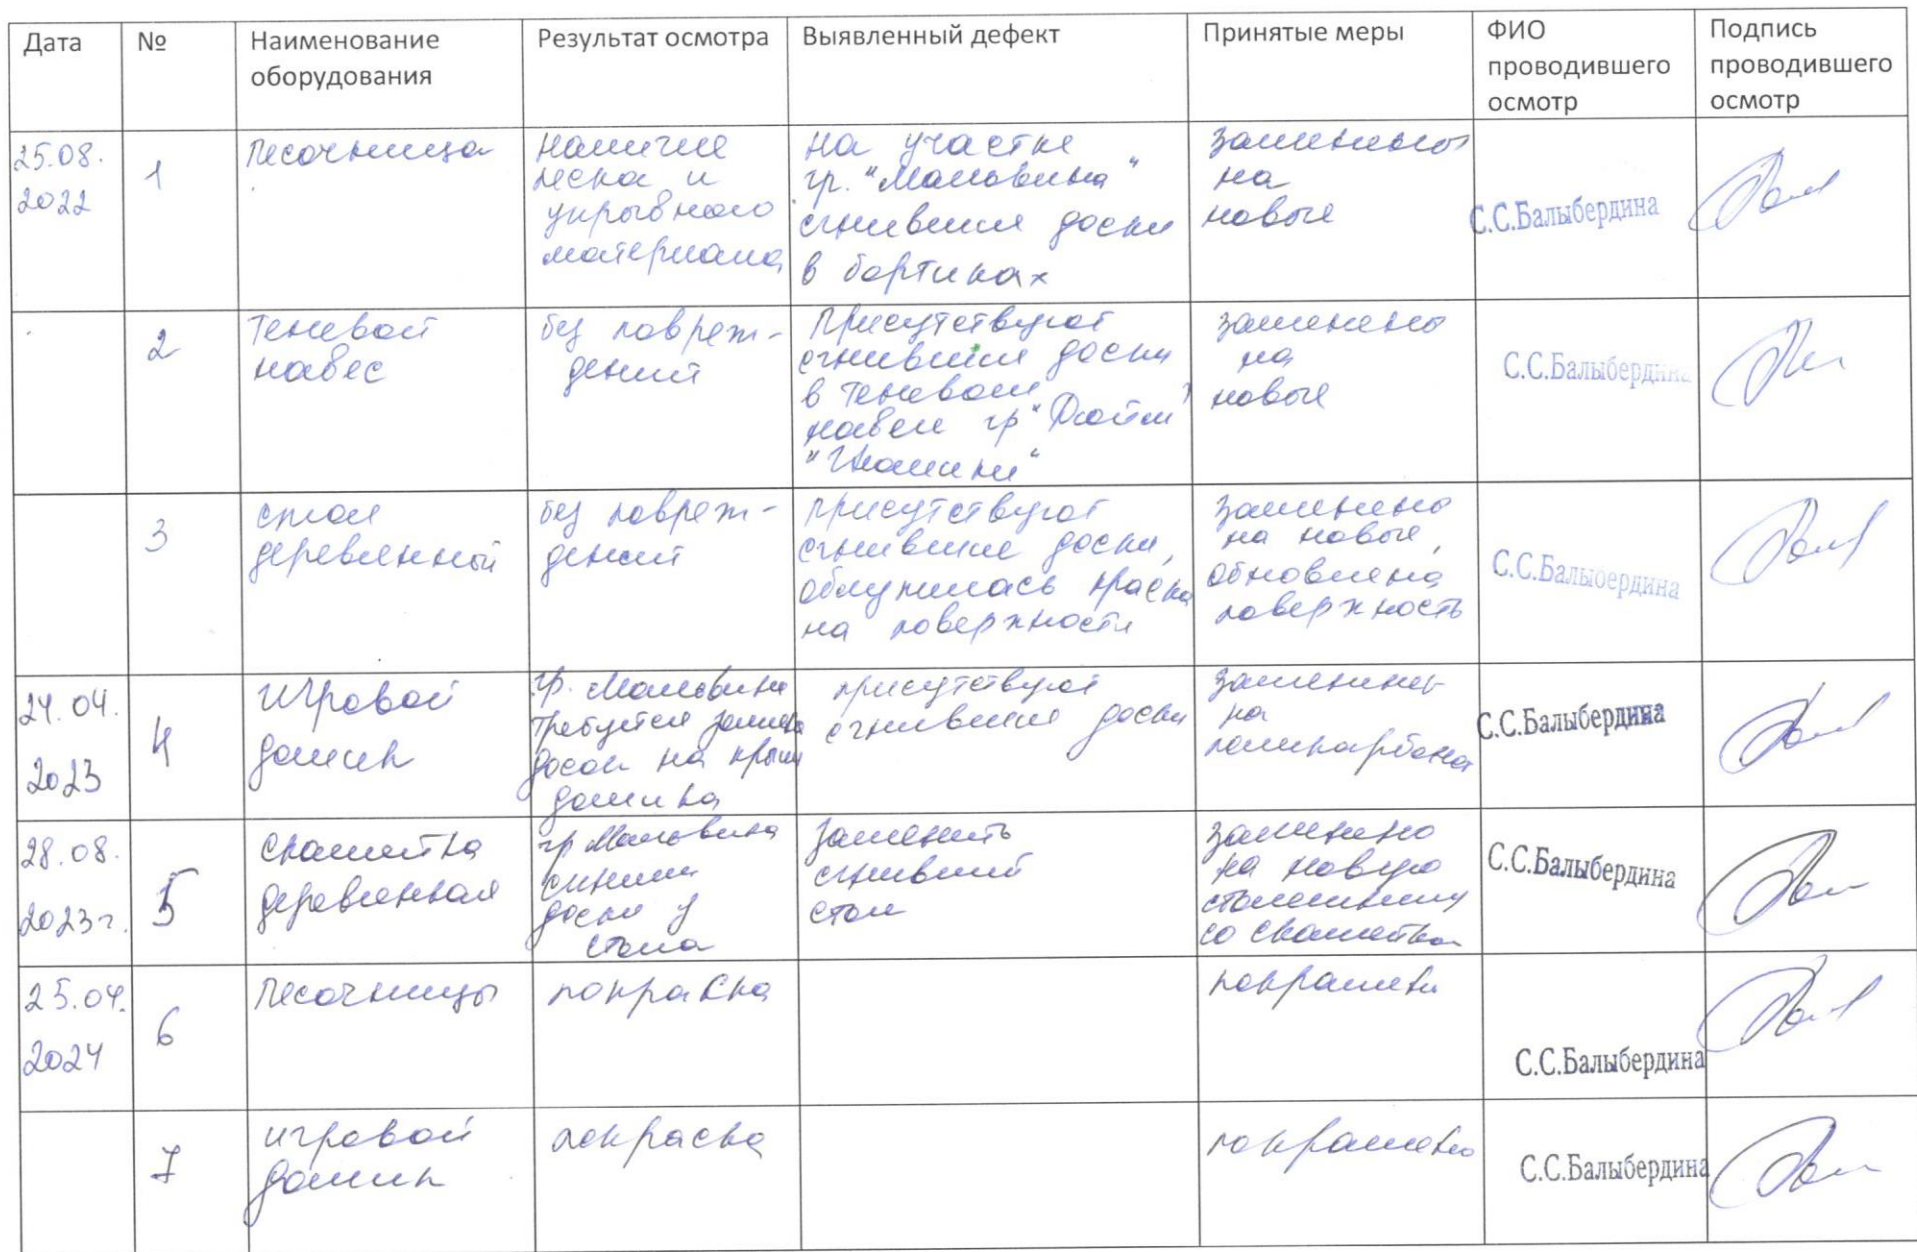 Дата
№
Наименование
оборудования
Результат осмотра
Выявленный дефект
Принятые меры
ФИО
проводившего
осмотр
Подпись
проводившего
осмотр
25.08.
2022
1
Песочница
наличие
песка и
укрывного
материала
на участке
гр. "Мальвина"
сгнившие доски
в бортиках
заменены
на
новые
С.С.Балыбердина
2
Теневой
навес
без повреж-
дений
Присутствуют
сгнившие доски
в теневом
навесе гр
"Гномики"
заменены
на
новые
С.С.Балыбердина
3
стол
деревянный
без повреж-
дений
присутствуют
сгнившие доски,
облупилась краска
на поверхности
заменены
на новые,
обновлена
поверхность
С.С.Балыбердина
24.04.
2023
4
Игровой
домик
гр. Мальвина
требуется замена
досок на крыше
домика
присутствуют
сгнившие доски
заменены
на
поликарбонат
С.С.Балыбердина
28.08.
2023г.
5
скамейка
деревянная
гр Мальвина
доски у
стола
заменить
сгнивший
стол
заменено
на новую
столешницу
со скамейкой
С.С.Балыбердина
25.04.
2024
6
Песочницы
покраска
покрашены
С.С.Балыбердина
7
игровой
домик
покраска
покрашено
С.С.Балыбердина